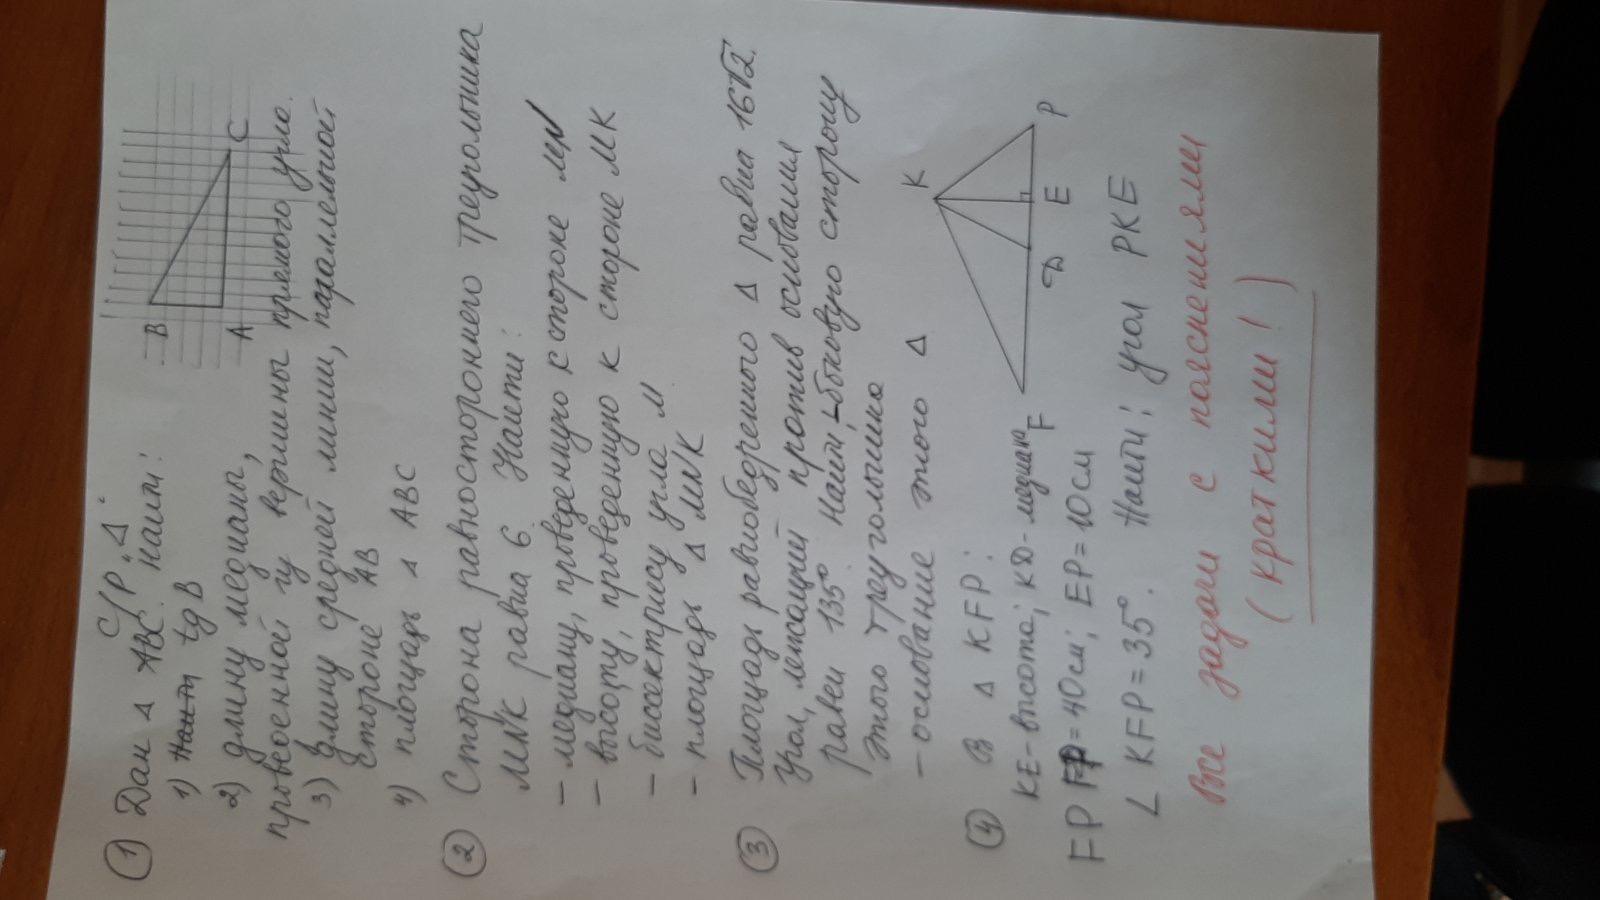 С/Р "Δ"
① Дан Δ ABC. Найти:
1) Найти tg B
2) длину медианы,
проведенной из вершины прямого угла.
3) длину средней линии, параллельной
стороне AB
4) площадь Δ ABC
B
A
C
② Сторона равностороннего треугольника
MNK равна 6. Найти:
– медиану, проведенную к стороне MN
– высоту, проведенную к стороне MK
– биссектрису угла M
– площадь Δ MNK
③ Площадь равнобедренного Δ равна 16√2.
Угол, лежащий против основания
равен 135° найти – боковую сторону
этого треугольника
– основание этого Δ
④ В Δ KFP:
KE - высота; KD - медиана
FP = 40 см; EP = 10 см
∠ KFP = 35°. Найти: угол PKE
K
F
D
E
P
Все задачи с пояснениями
(краткими!)